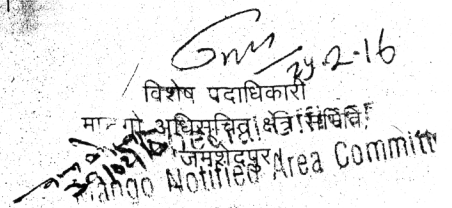 29.2.16
विशेष पदाधिकारी
मानगो अधिसूचित क्षेत्र समिति
जमशेदपुर
Mango Notified Area Committ